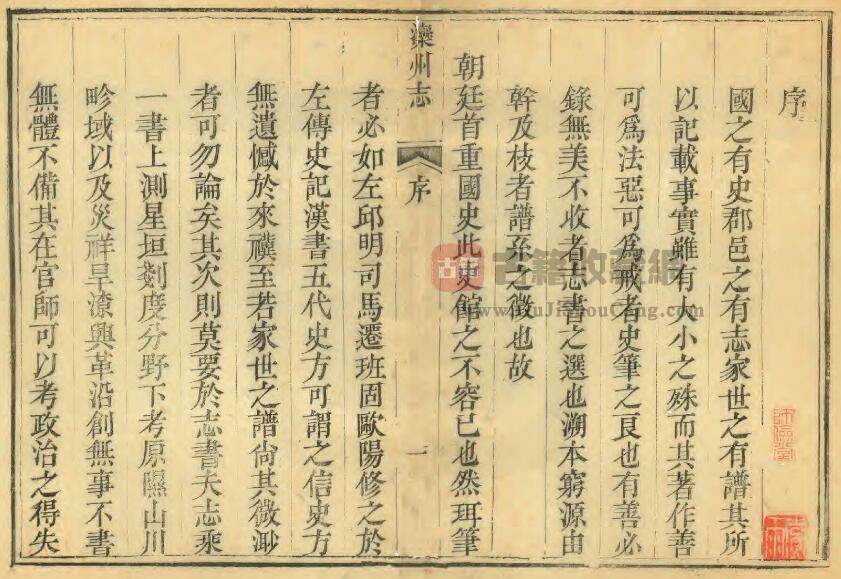 序
國之有史郡邑之有志家世之有譜其所
以記載事實雖有大小之殊而其著作善
可爲法惡可爲戒者史筆之良也有善必
錄無美不收者志書之選也溯本窮源由
幹及枝者譜系之徵也故
朝廷首重國史此史館之不容已也然珥筆
灤州志
序
一
者必如左邱明司馬遷班固歐陽修之於
左傳史記漢書五代史方可謂之信史方
無遺憾於來禩至若家世之譜尙其微渺
者可勿論矣其次則莫要於志書夫志乘
一書上測星垣剡度分野下考原隰山川
畛域以及災祥旱潦興革沿創無事不書
無體不備其在官師可以考政治之得失
古籍
古籍收藏網
www.GuJiShouCang.com